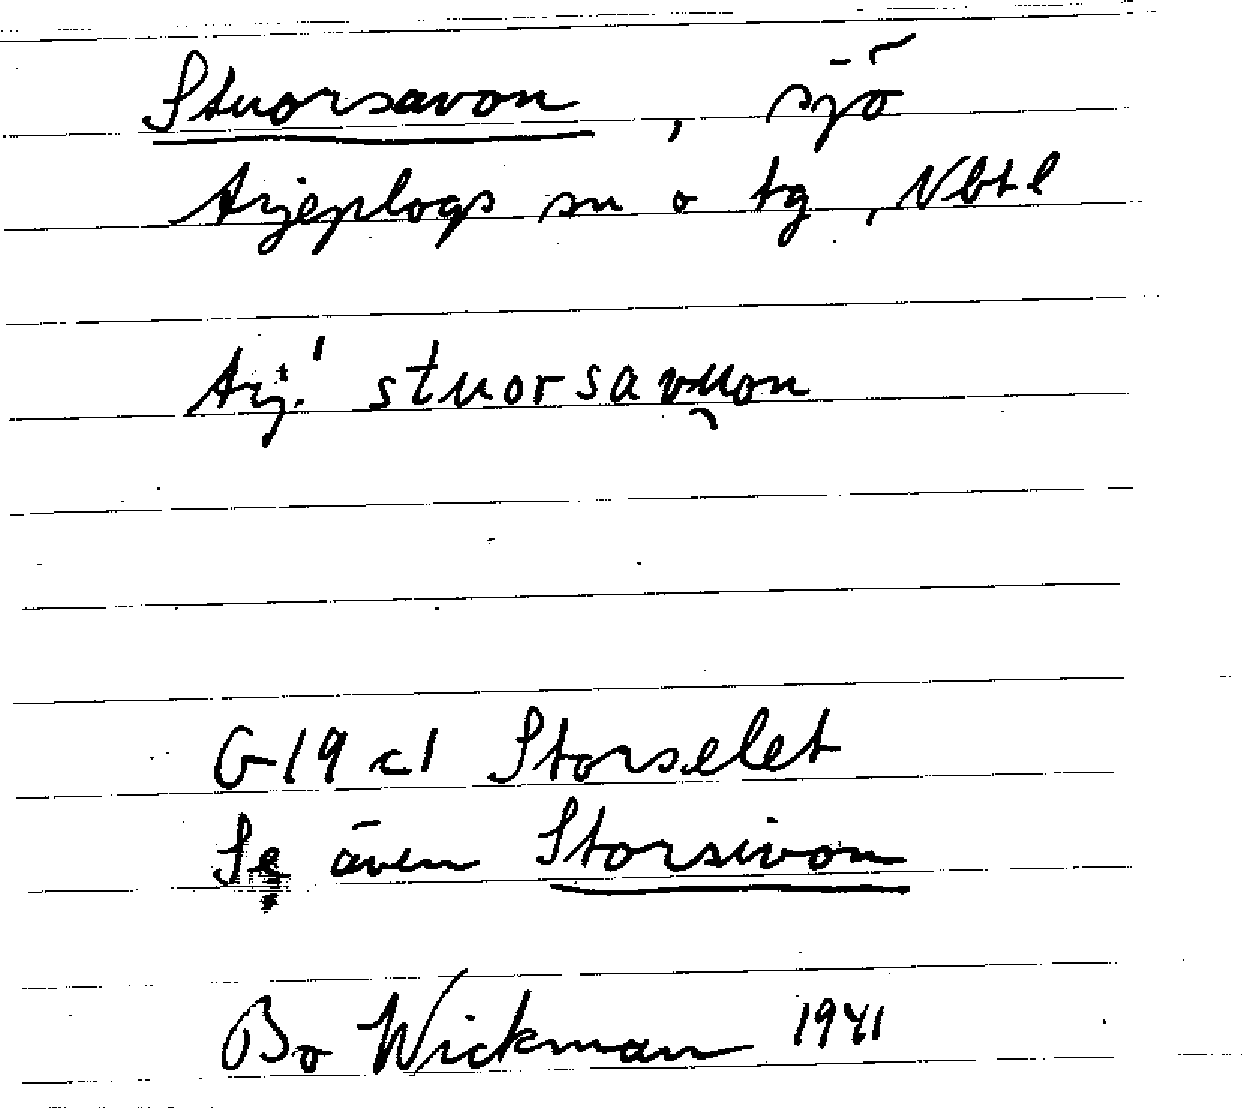 Stuorsavon, sjö
Arjeplogs sn o tg, Nbtl
Arj. stuorsavu̯on
G 19 c1 Storselet
Se även Storsivon
Bo Wickman 1941